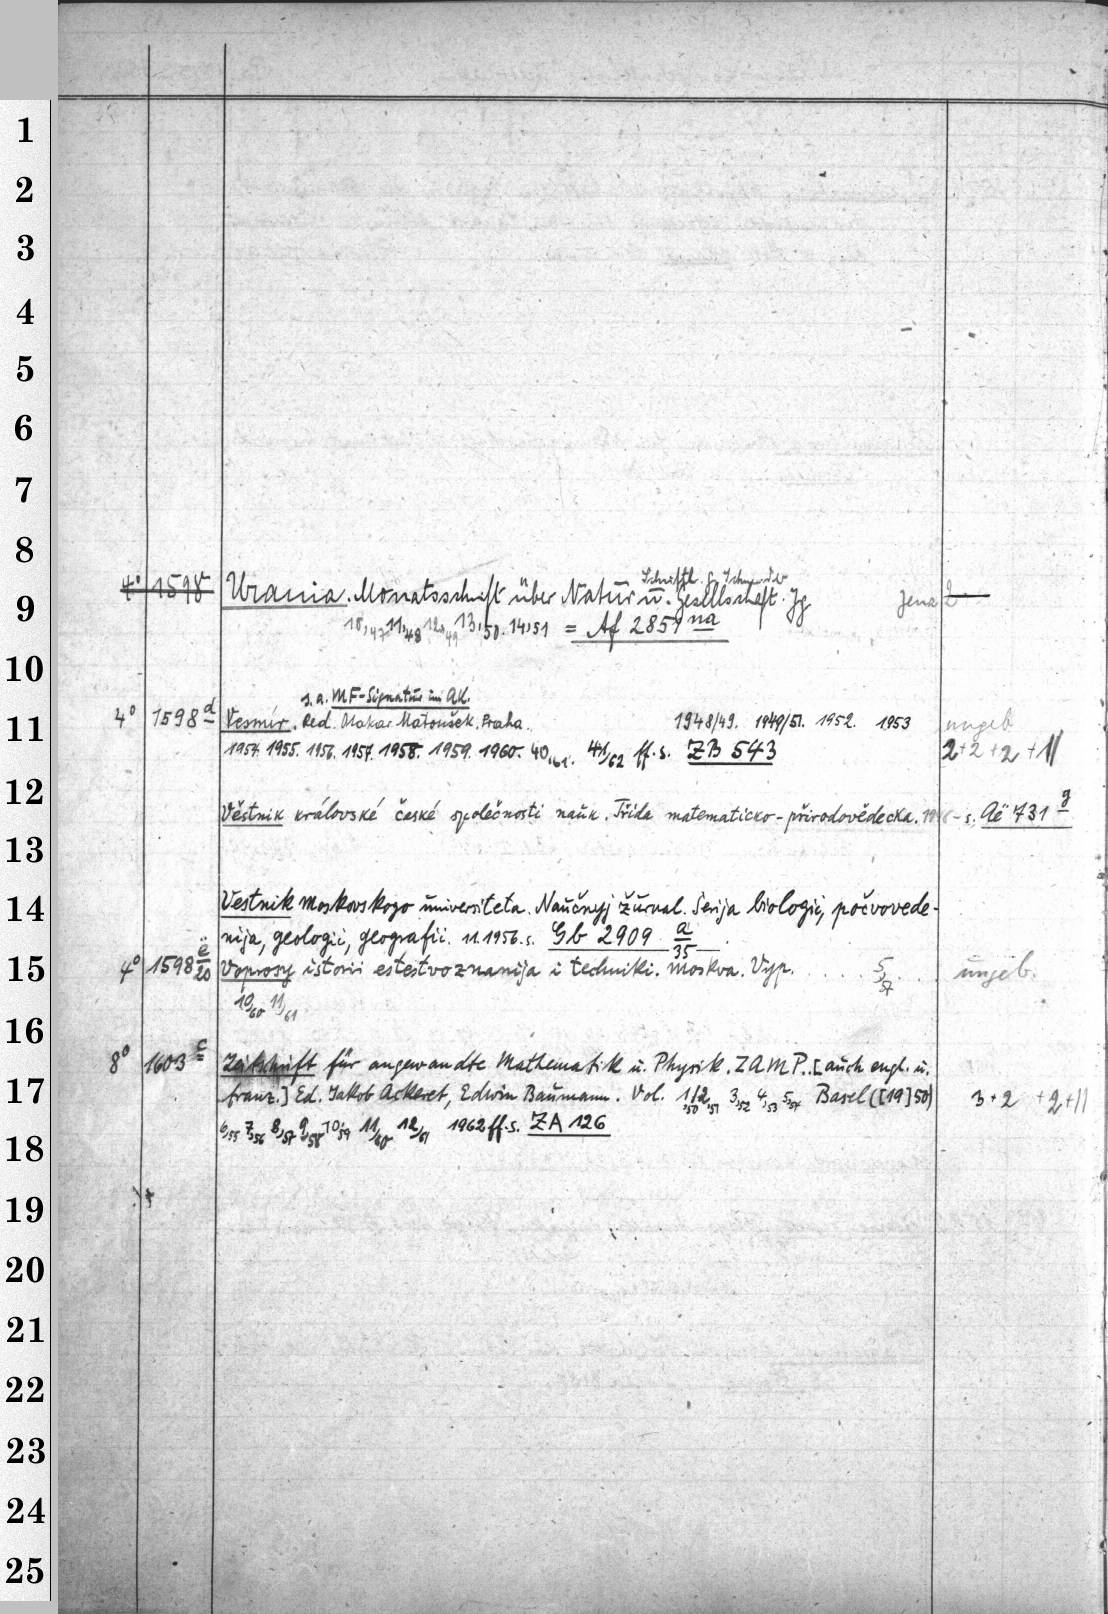 1
2
3
4
5
6
7
8
Schriftl.
4° 1598 Urania. Monatsschrift über Natur u. Gesellschaft. Jg Jena 2
9
10,47 11,48 12,49 13,50. 14,51 = Af 2851 na
10
s. a. MF-Signatur im AK.
4° 1598 d Vesmír. Red. Otakar Matoušek. Praha. 1948/49. 1949/51. 1952. 1953 ungeb
11
1954. 1955. 1956. 1957. 1958. 1959. 1960. 40,61. 41/62 ff. s. ZB 543 2+2+2+11
12
Věstník královské české společnosti nauk. Třída matematicko-přírodovědecka. s. Aë 731 g
13
14 Vestnik moskovskogo universiteta. Naučnyj žurnal. Serija biologii, počvovede-
nija, geologii, geografii. 11.1956. s. Gb 2909 a/35
15 4° 1598 ë/20 Voprosy istorii estestvoznanija i techniki. Moskva. Vyp. 5,57 ungeb.
10/60 11/61
16
8° 1603 c Zeitschrift für angewandte Mathematik u. Physik. ZAMP. [auch engl. u.
17 franz.] Ed. Jakob Ackeret, Edwin Baumann. Vol. 1,50 2,51 3,52 4,53 5,54 Basel ([19]50) 3+2 +2+11
6,55 7,56 8,57 9,58 10,59 11/60 12/61 1962 ff. s. ZA 126
18
19
20
21
22
23
24
25